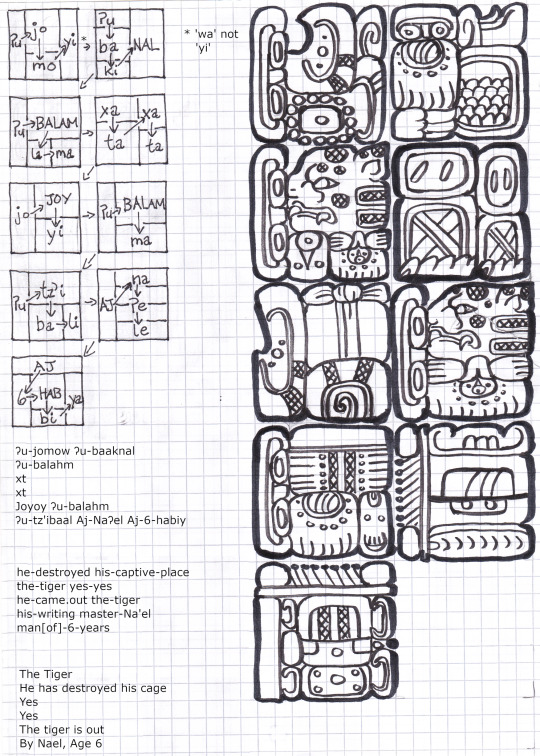 ʔu jo mo yi *
ʔu ba ki NAL
* 'wa' not
'yi'
ʔu BALAM la ma
xa ta xa ta
jo JOY yi
ʔu BALAM ma
ʔu tzʔi ba li
AJ na ʔe le
AJ 6 HAB bi ya
ʔu-jomow ʔu-baaknal
ʔu-balahm
xt
xt
Joyoy ʔu-balahm
ʔu-tz'ibaal Aj-Naʔel Aj-6-habiy
he-destroyed his-captive-place
the-tiger yes-yes
he-came.out the-tiger
his-writing master-Na'el
man[of]-6-years
The Tiger
He has destroyed his cage
Yes
Yes
The tiger is out
By Nael, Age 6